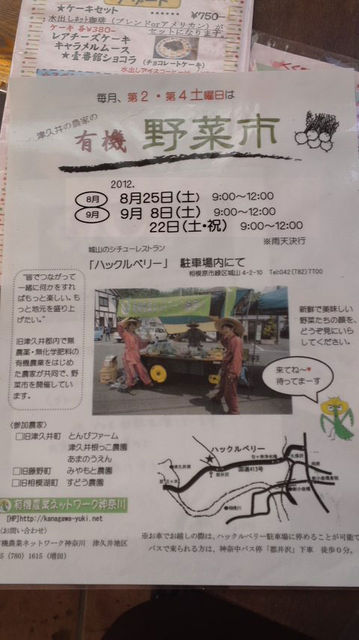 ★ケーキセット ¥750―
水出しﾎｯﾄ珈琲（ブレンドorアメリカン）が
ケーキ各¥380― セットになります
レアチーズケーキ
キャラメルムース
★壹番館ショコラ（チョコレートケーキ）
毎月、第2・第4土曜日は
津久井の農家の
有機 野菜市
2012.
8月 8月25日(土) 9:00～12:00
9月 9月 8日(土) 9:00～12:00
22日(土・祝) 9:00～12:00
※雨天決行
城山のシチューレストラン
「ハックルベリー」 駐車場内にて
相模原市緑区城山4-2-10 Tel:042(782)7700
"皆でつながって
一緒に何かをすれ
ばもっと楽しい。も
っと地元を盛り上
げたい。"
旧津久井郡内で無
農薬・無化学肥料の
有機農業をはじめ
た農家が共同で、野
菜市を開催してい
ます。
新鮮で美味しい
野菜たちの顔を、
どうぞ見にいら
してください。
来てね～
待ってまーす
(参加農家)
□旧津久井町 とんびファーム
津久井根っこ農園
あまのうえん
□旧藤野町 みやもと農園
□旧相模湖町 すどう農園
ハックルベリー
国道413号
都井沢
有機農業ネットワーク神奈川
[HP]http://kanagawa-yuki.net
お問い合わせ）
機農業ネットワーク神奈川 津久井地区
5(780)1615(増田)
※お車でお越しの際は、ハックルベリー駐車場に停めることが可能で
バスで来られる方は、神奈中バス停「都井沢」下車 徒歩0分。